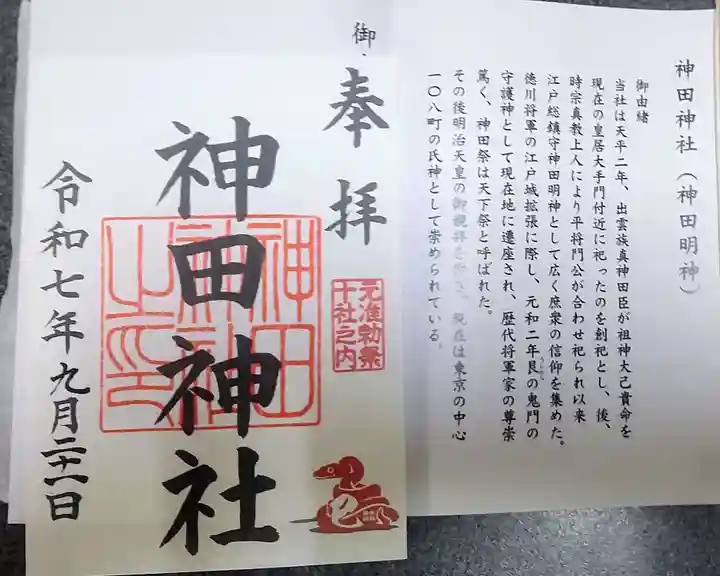 神田神社（神田明神）
御由緒
当社は天平二年、出雲族真神田臣が祖神大己貴命を
現在の皇居大手門付近に祀ったのを創祀とし、後、
時宗真教上人により平将門公が合わせ祀られ以来
江戸総鎮守神田明神として広く庶衆の信仰を集めた。
徳川将軍の江戸城拡張に際し、元和二年艮の鬼門の
守護神として現在地に遷座され、歴代将軍家の尊崇
篤く、神田祭は天下祭と呼ばれた。
その後明治天皇の御親拝を
現在は東京の中心
一〇八町の氏神として崇められている。
御
奉拝
元准勅祭
十社之内
神田神社
神田
神社
之印
令和七年九月二十一日